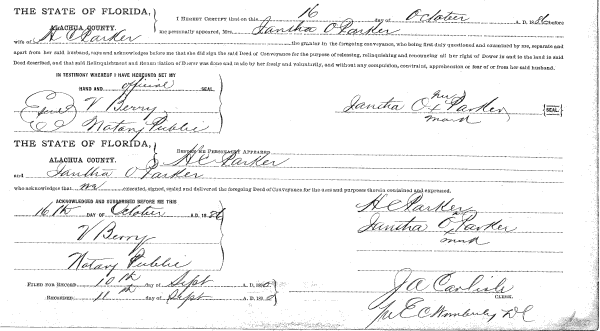 THE STATE OF FLORIDA,
ALACHUA COUNTY.
I HEREBY CERTIFY that on this 16 day of October A. D. 1886 before
me personally appeared, Mrs. Iantha O Parker
wife of H C Parker the grantor to the foregoing conveyance, who being first duly questioned and examined by me, separate and
apart from her said husband, says and acknowledges before me that she did sign the said Deed of Conveyance for the purpose of releasing, relinquishing and renouncing all her right of Dower in and to the land in
said Deed described, and that said Relinquishment and Renunciation of Dower was done and made by her freely and voluntarily, and without any compulsion, constraint, apprehension or fear of or from her said husband.
IN TESTIMONY WHEREOF I HAVE HEREUNTO SET MY
HAND AND official SEAL.
V Berry
Notary Public
her
Iantha O x Parker
mark
SEAL
THE STATE OF FLORIDA,
ALACHUA COUNTY.
BEFORE ME PERSONALLY APPEARED H C Parker
and Iantha O Parker
who acknowledges that executed, signed, sealed and delivered the foregoing Deed of Conveyance for the uses and purposes therein contained and expressed.
ACKNOWLEDGED AND SUBSCRIBED BEFORE ME THIS
16th DAY OF October A.D. 1886
V Berry
Notary Public
H C Parker
Iantha O x Parker
mark
FILED FOR RECORD 10th day of Sept A. D. 189
RECORDED 11th day of Sept A. D. 189
J A Carlisle
CLERK.
per E C DC